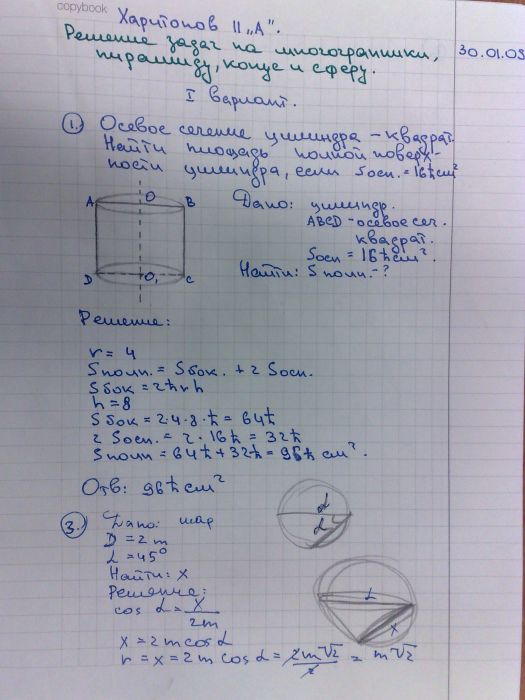 copybook
Харитонов 11 „А".
Решение задач на многогранники, 30.01.09
пирамиду, конус и сферу.
I вариант.
1. Осевое сечение цилиндра – квадрат.
Найти площадь полной поверх-
ности цилиндра, если Sосн. = 16π см²
A O B
D O₁ C
Дано: цилиндр.
ABCD – осевое сеч.
квадрат.
Sосн = 16π см².
Найти: Sполн. – ?
Решение:
r = 4
Sполн. = Sбок. + 2 Sосн.
Sбок = 2πrh
h = 8
Sбок = 2·4·8·π = 64π
2 Sосн. = 2·16π = 32π
Sполн = 64π + 32π = 96π см².
Отв: 96π см²
3. Дано: шар
D = 2m
α = 45°
Найти: x
Решение:
cos α = x/2m
x = 2m cos α
r = x = 2m cos α = 2m√2/2 = m√2
α
α
α
x